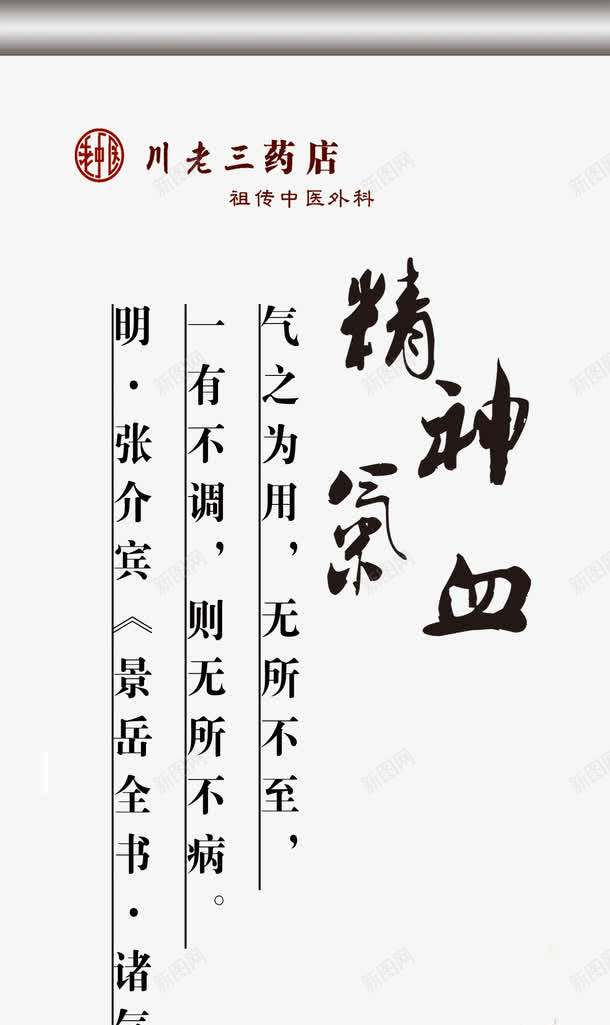 川老三药店
祖传中医外科
精神氣血
气之为用，无所不至，
一有不调，则无所不病。
明·张介宾《景岳全书·诸气